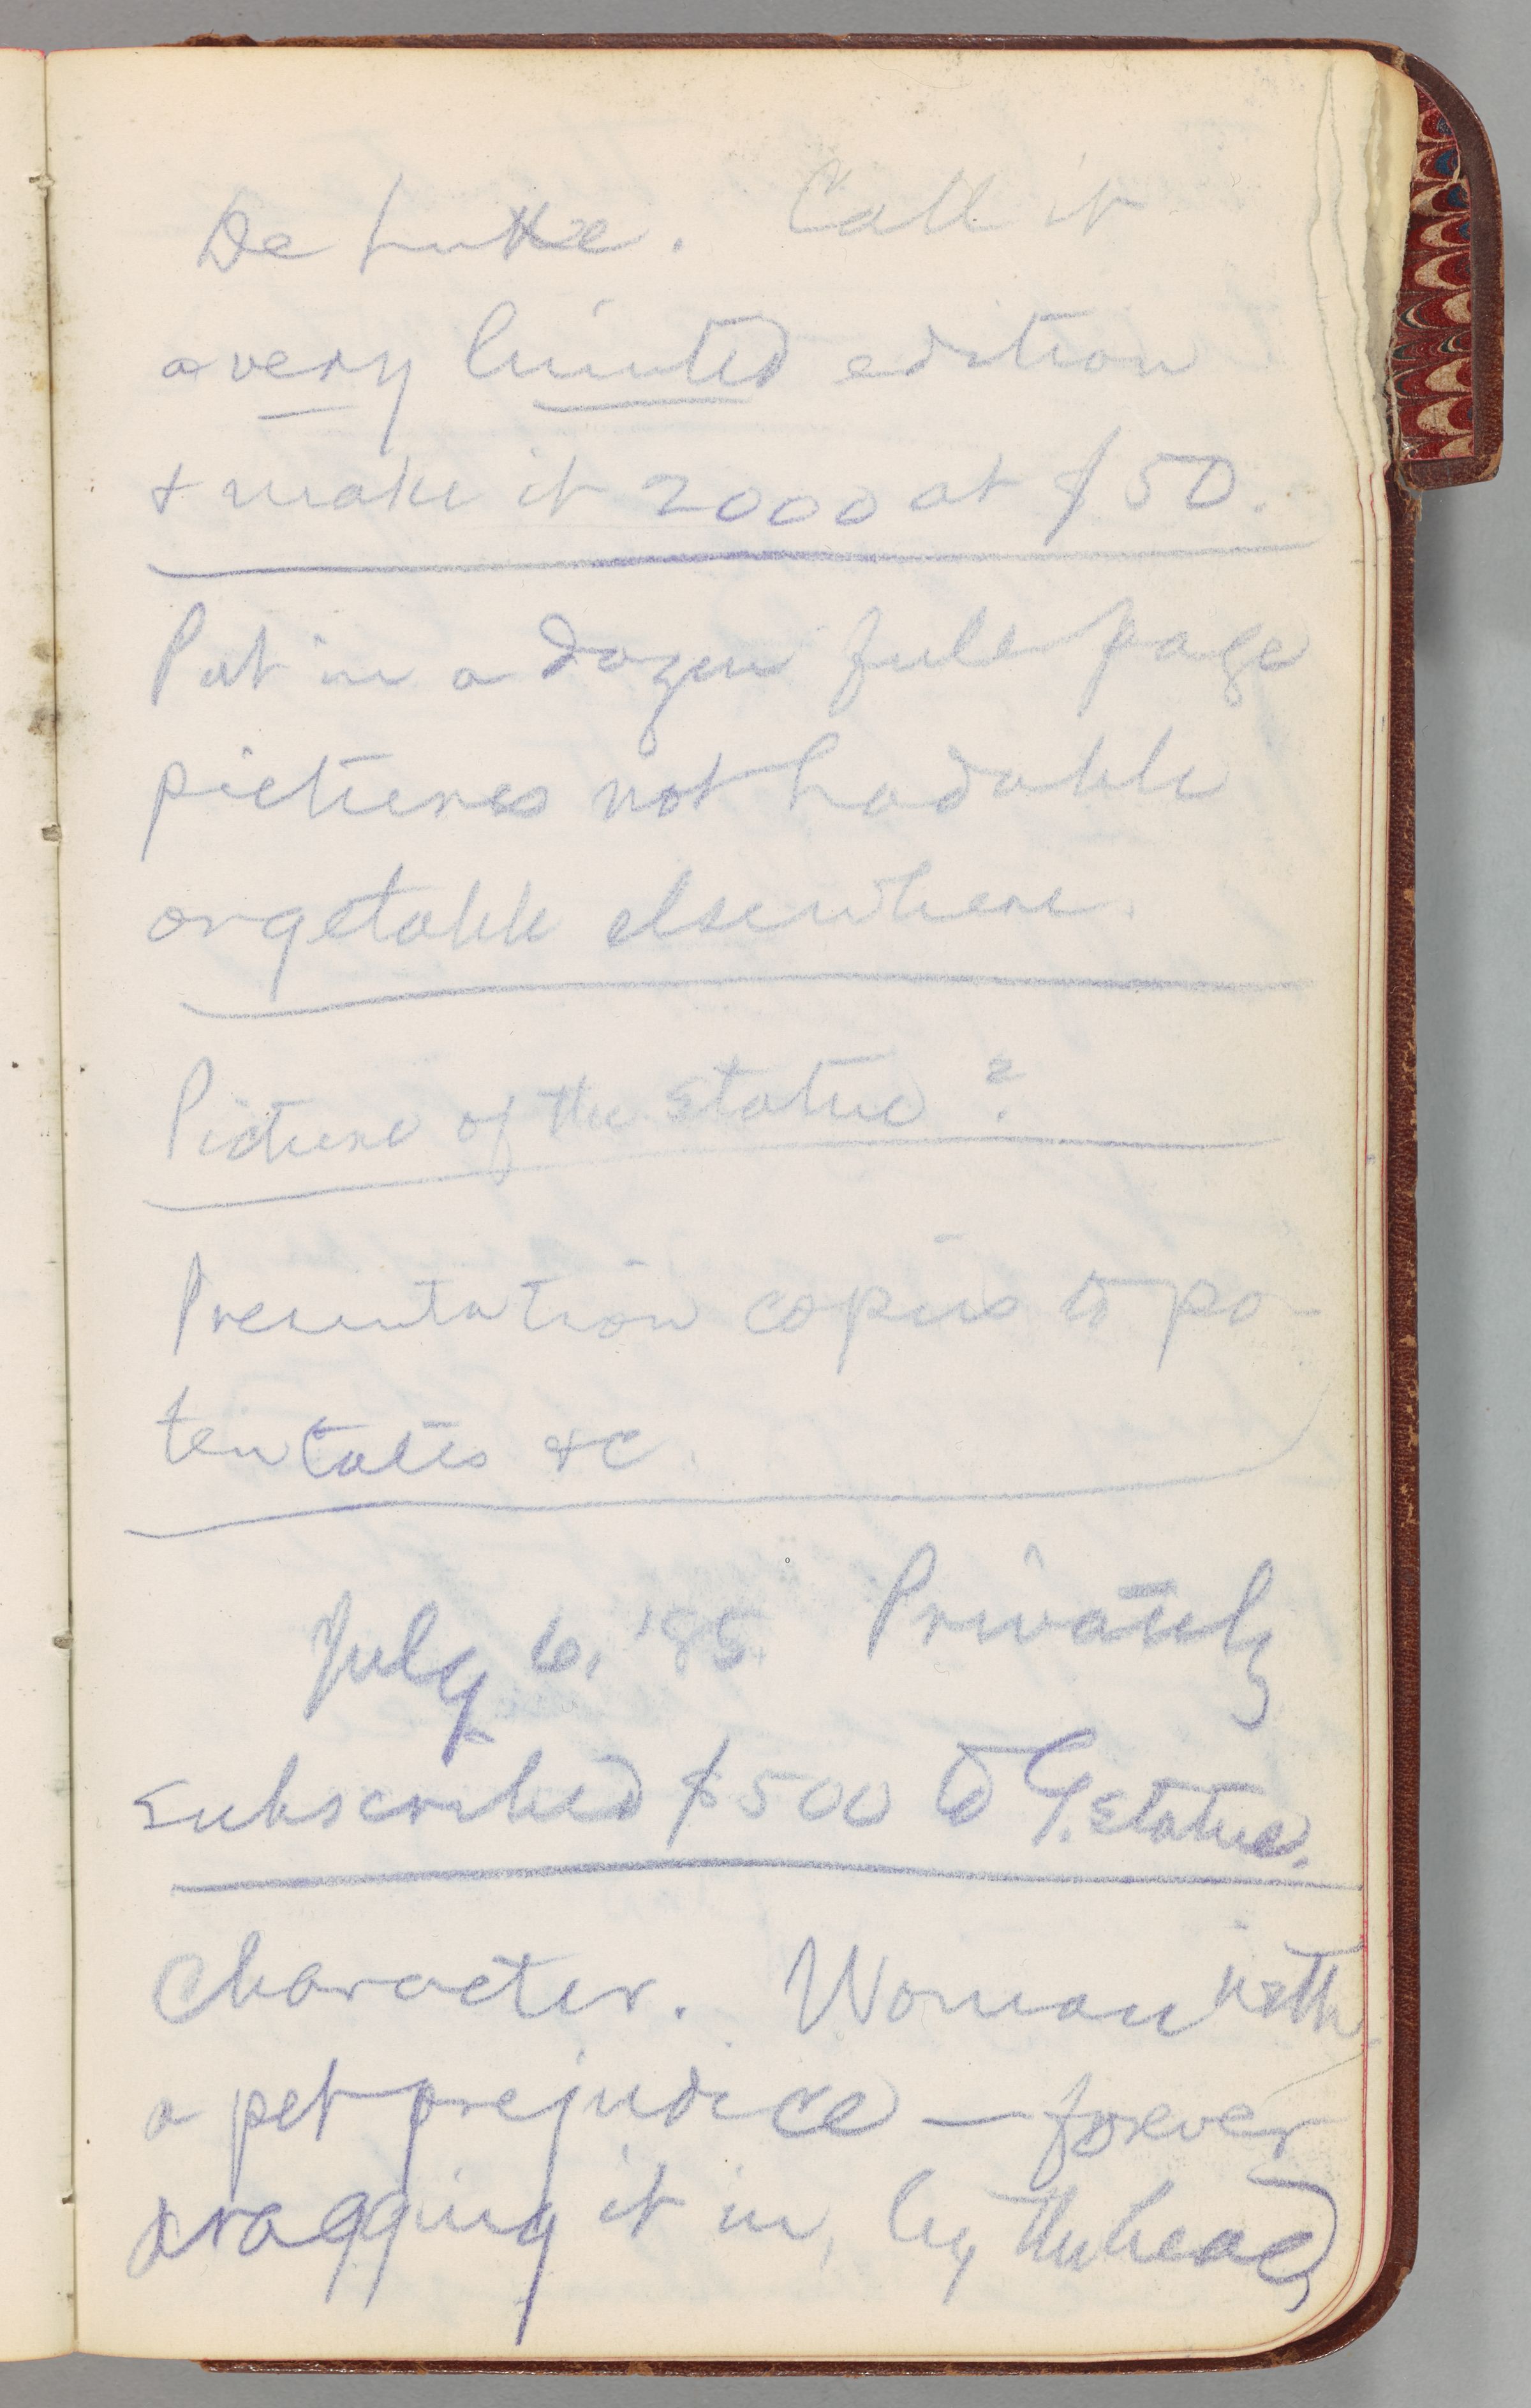 De Luxe. Call it
a very limited edition
& make it 2000 at $50.
Put in a dozen full-page
pictures not hadable
or getable elsewhere.
Picture of the statue?
Presentation copies to po-
tentates &c.
July 6, '85. Privately
subscribed $500 to G. statue.
Character. Woman with
a pet prejudice — forever
dragging it in, by the head